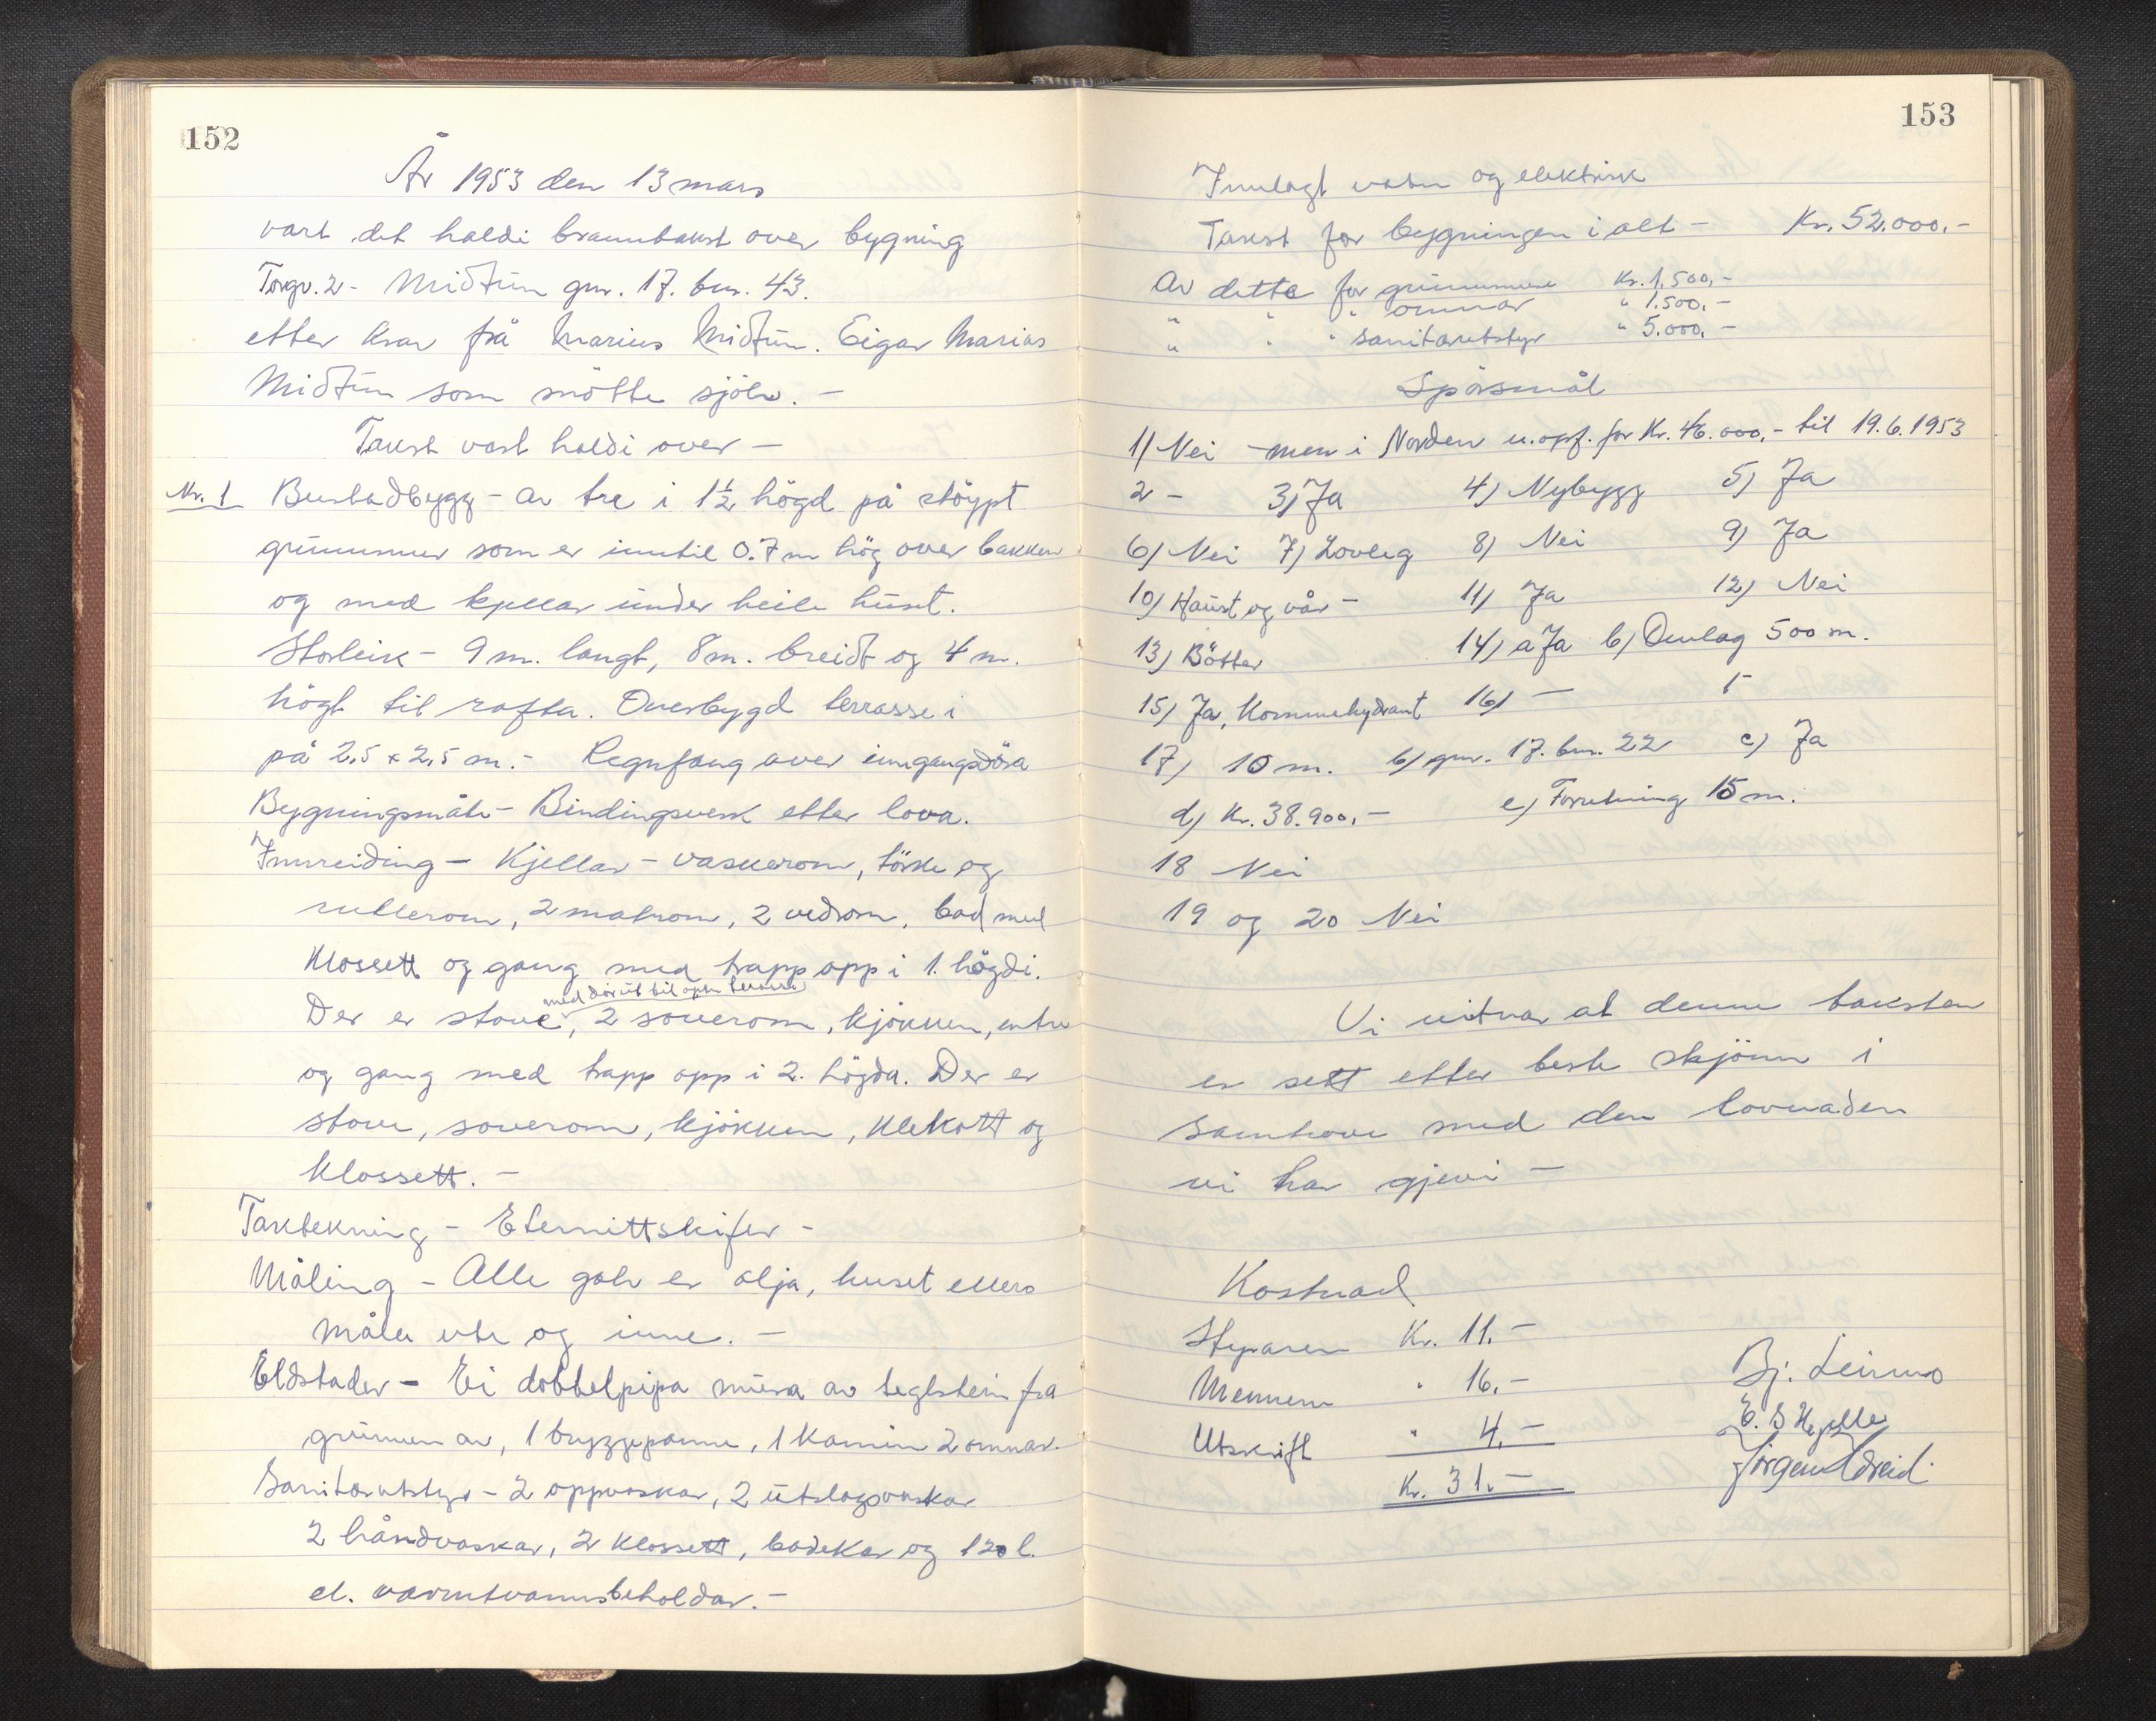 152
År 1953 den 13 mars
vart det haldi branntakst over bygning
Torgv. 2 - Midtun gnr. 17. bnr. 43.
etter krav frå Marius Midtun. Eigar Marius
Midtun som mötte sjölv. -
Takst vart haldi over -
Nr. 1 Bustadbygg - av tre i 1½ högd på stöypt
grunnmur som er inntil 0.7 m hög over bakken
og med kjellar under heile huset.
Storleik - 9 m. langt, 8 m. breidt og 4 m.
högt til rafta. Overbygd terrasse i
på 2,5 x 2,5 m. - Regnfang over inngangsdöra
Bygningsmåte - Bindingsverk etter lova.
Innreiding - Kjellar - vaskerom, törke og
rullerom, 2 matrom, 2 vedrom, bad med
klossett og gang med trapp opp i 1. högdi.
med dör ut til open terrasse
Der er stove, 2 soverom, kjökken, entre
og gang med trapp opp i 2. högda. Der er
stove, soverom, kjökken, klekott og
klossett. -
Taktekning - Eternittskifer -
Måling - Alle golv er olja, huset ellers
måla ute og inne. -
Eldstader - Ei dobbelpipa mura av teglstein frå
grunnen av, 1 bryggepanne, 1 kamin 2 omnar.
Sanitærutstyr - 2 oppvaskar, 2 utslagsvaskar
2 håndvaskar, 2 klossett, badekar og 120 l.
el. varmtvannsbeholdar. -
153
Innlagt vatn og elektrisk
Takst for bygningen i alt - Kr. 52.000.-
Av dette for grunnmur Kr. 1.500,-
" " " omnar " 1.500.-
" " " sanitærutstyr " 5.000,-
Spörsmål
1) Nei - men i Norden u.opf. for Kr. 46.000,- til 19.6.1953
2 - 3) Ja 4) Nybygg 5) Ja
6) Nei 7) Lovleg 8) Nei 9) Ja
10) Haust og vår - 11) Ja 12) Nei
13) Bötter 14) a Ja b) Omlag 500 m.
15) Ja, Kommehydrant 16) -
17) 10 m. b) gnr. 17. bnr. 22 c) Ja
d) Kr. 38.900,- e) Forretning 15 m.
18 Nei
19 og 20 Nei
Vi vitnar at denne taksten
er sett etter beste skjönn i
samhove med den lovnaden
vi har gjevi -
Kostnad
Styraren Kr. 11.-
Mennene " 16.-
Utskrift " 4.-
Kr. 31.-
Bj. Leirmo
E. S. Hjelle
Jörgen Ødreid